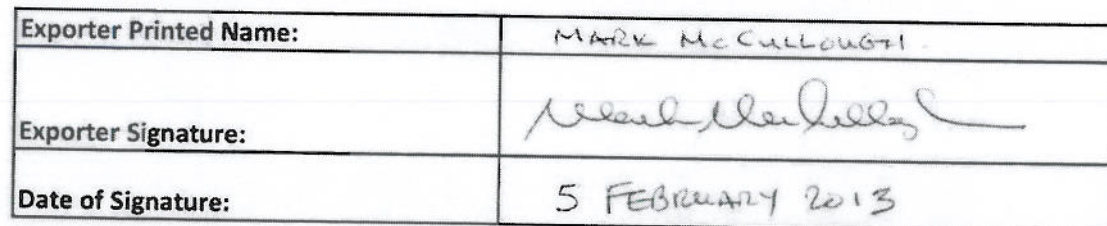 Exporter Printed Name: MARK McCULLOUGH.
Exporter Signature: Mark McCullough
Date of Signature: 5 FEBRUARY 2013